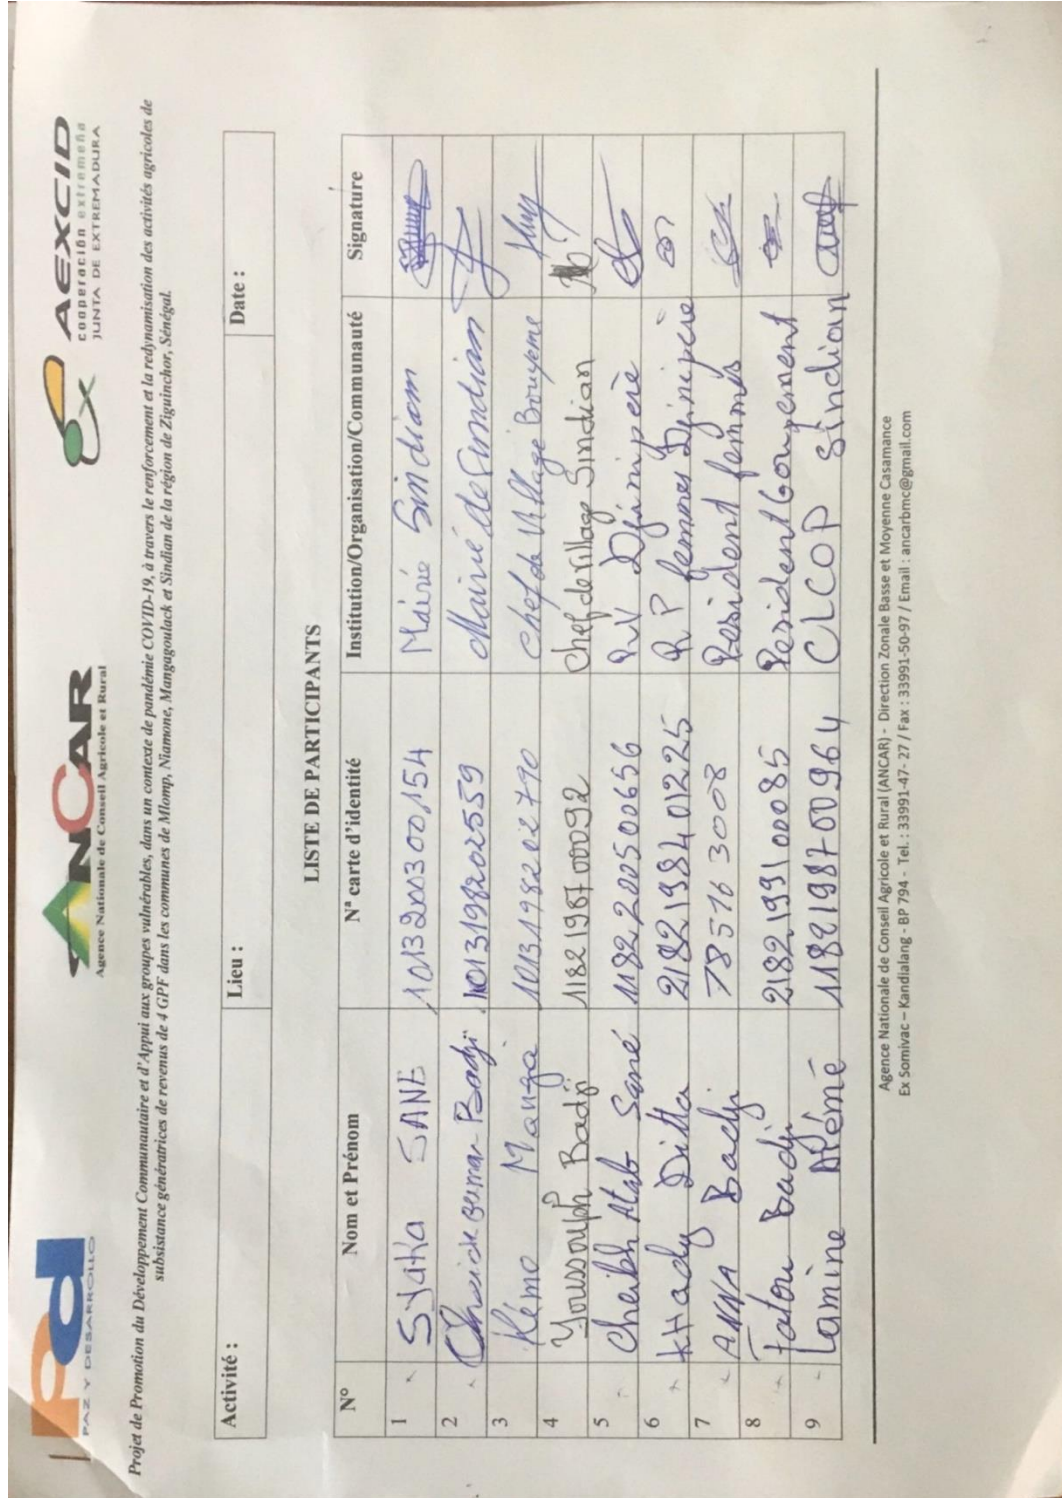 Pd
PAZ Y DESARROLLO
ANCAR
Agence Nationale de Conseil Agricole et Rural
AEXCID
cooperación extremeña
JUNTA DE EXTREMADURA
Projet de Promotion du Développement Communautaire et d'Appui aux groupes vulnérables, dans un contexte de pandémie COVID-19, à travers le renforcement et la redynamisation des activités agricoles de
subsistance génératrices de revenus de 4 GPF dans les communes de Mlomp, Niamone, Mangagoulack et Sindian de la région de Ziguinchor, Sénégal.
Activité : Lieu : Date :
LISTE DE PARTICIPANTS
N° Nom et Prénom N° carte d'identité Institution/Organisation/Communauté Signature
1 SANE 1013200300154 Mairie Sindian
2 Badji 1013198202559 Mairie de Sindian
3 Kémo Manga 1013198202790 Chef de Village
4 Youssouph Badji 1182198700092 Chef de village Sindian
5 Cheikh Atab Sané 1182200500656 Djinipère
6 KHady 2182198401225 femmes Djinipère
7 ANNA Badji 785763008 Président femmes
8 Fatou Badji 2182199100085
9 Lamine 1182198700964 CLCOP Sindian
Agence Nationale de Conseil Agricole et Rural (ANCAR) - Direction Zonale Basse et Moyenne Casamance
Ex Somivac – Kandialang - BP 794 - Tel. : 33991-47- 27 / Fax : 33991-50-97 / Email : ancarbmc@gmail.com